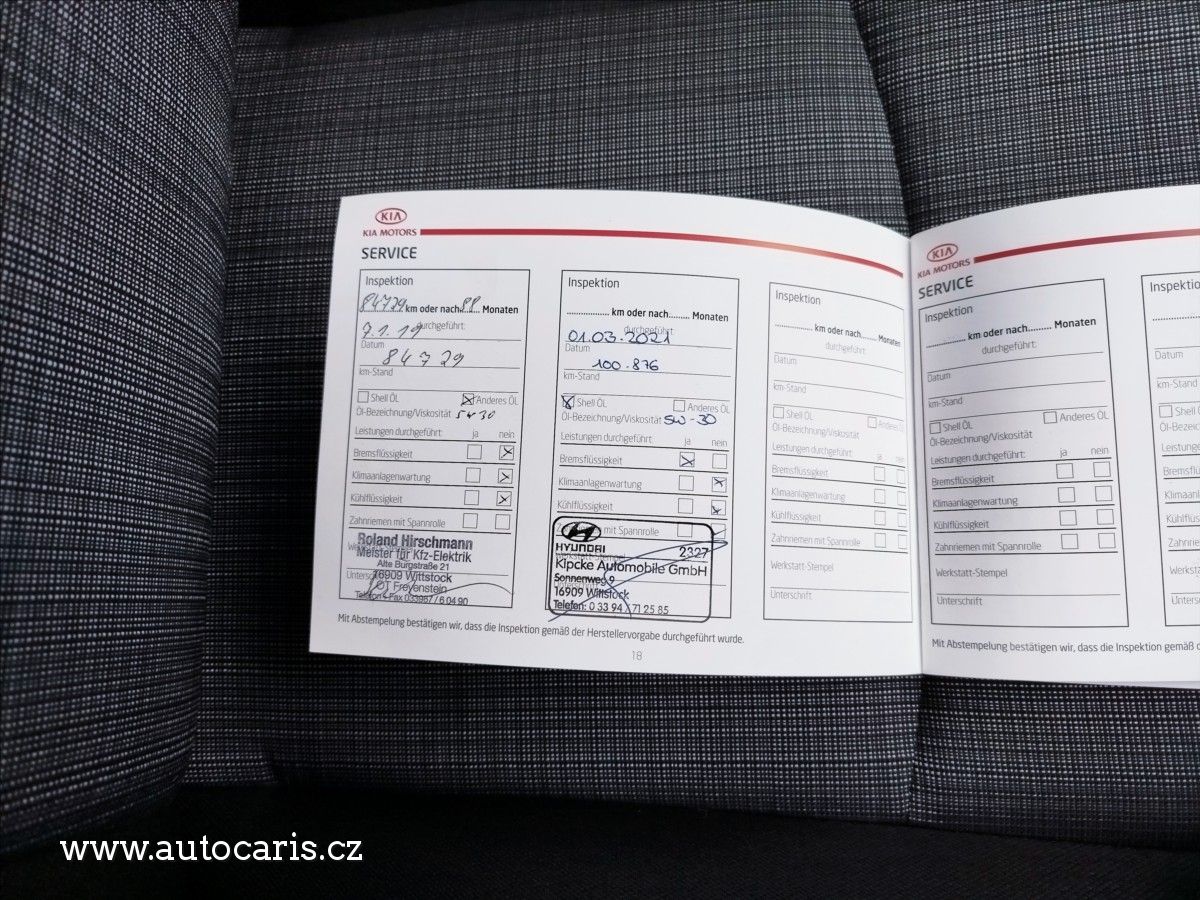 KIA
KIA MOTORS
SERVICE
Inspektion
84729 km oder nach 88 Monaten
durchgeführt:
7.1.19
Datum
84729
km-Stand
Shell ÖL Anderes ÖL
Öl-Bezeichnung/Viskosität 5W30
Leistungen durchgeführt: ja nein
Bremsflüssigkeit
Klimaanlagenwartung
Kühlflüssigkeit
Zahnriemen mit Spannrolle
Roland Hirschmann
Meister für Kfz-Elektrik
Alte Burgstraße 21
16909 Wittstock
OT Freyenstein
Telefon + Fax 033967 / 6 04 90
Inspektion
km oder nach Monaten
durchgeführt:
01.03.2021
Datum
100.876
km-Stand
Shell ÖL Anderes ÖL
Öl-Bezeichnung/Viskosität 5W-30
Leistungen durchgeführt: ja nein
Bremsflüssigkeit
Klimaanlagenwartung
Kühlflüssigkeit
Zahnriemen mit Spannrolle
HYUNDAI 2327
Kipcke Automobile GmbH
Sonnenweg 9
16909 Wittstock
Telefon: 0 33 94 / 71 25 85
Inspektion
km oder nach Monaten
durchgeführt:
Datum
km-Stand
Shell ÖL Anderes ÖL
Öl-Bezeichnung/Viskosität
Leistungen durchgeführt: ja nein
Bremsflüssigkeit
Klimaanlagenwartung
Kühlflüssigkeit
Zahnriemen mit Spannrolle
Werkstatt-Stempel
Unterschrift
Mit Abstempelung bestätigen wir, dass die Inspektion gemäß der Herstellervorgabe durchgeführt wurde.
18
KIA
KIA MOTORS
SERVICE
Inspektion
km oder nach Monaten
durchgeführt:
Datum
km-Stand
Shell ÖL Anderes ÖL
Öl-Bezeichnung/Viskosität
Leistungen durchgeführt: ja nein
Bremsflüssigkeit
Klimaanlagenwartung
Kühlflüssigkeit
Zahnriemen mit Spannrolle
Werkstatt-Stempel
Unterschrift
Mit Abstempelung bestätigen wir, dass die Inspektion gemäß
Datum
Shell
www.autocaris.cz